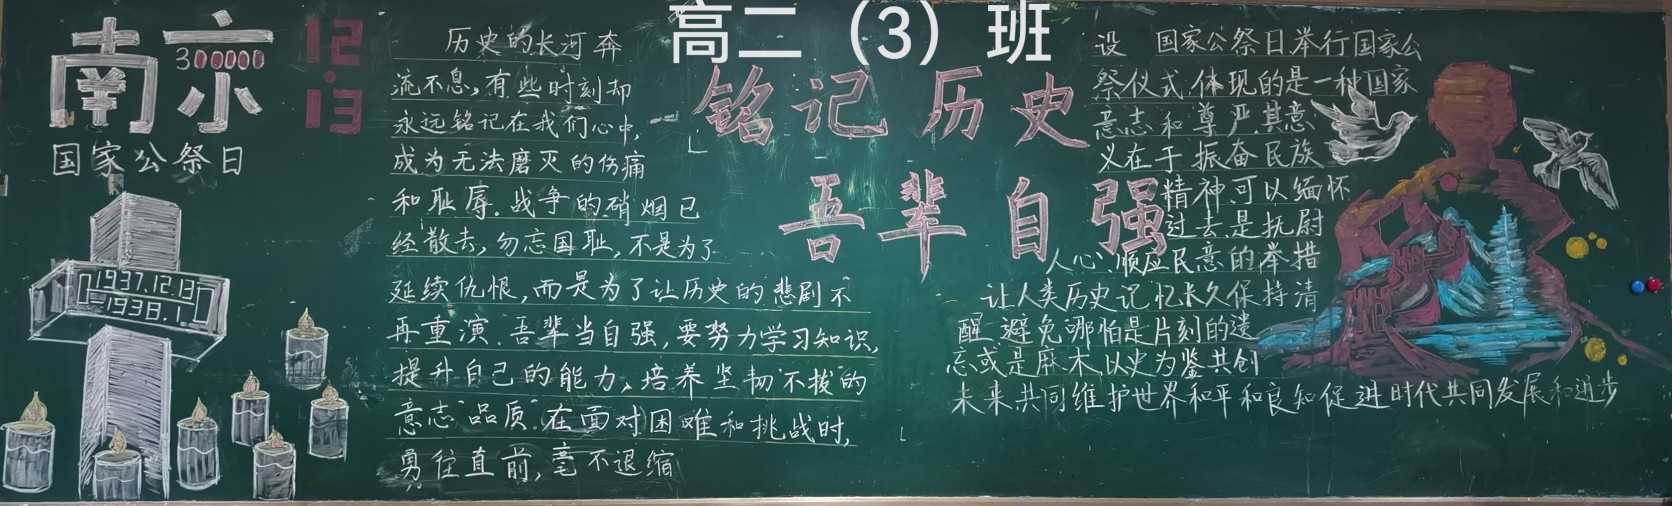 高二（3）班
南京
300000
12.13
国家公祭日
1937.12.13
-1938.1
铭记历史
吾辈自强
历史的长河奔
流不息,有些时刻却
永远铭记在我们心中,
成为无法磨灭的伤痛
和耻辱.战争的硝烟已
经散去,勿忘国耻,不是为了
延续仇恨,而是为了让历史的悲剧不
再重演.吾辈当自强,要努力学习知识,
提升自己的能力,培养坚韧不拔的
意志品质.在面对困难和挑战时,
勇往直前,毫不退缩
设 国家公祭日举行国家公
祭仪式.体现的是一种国家
意志和尊严.其意
义在于振奋民族
精神可以缅怀
过去是抚尉
人心、顺应民意的举措
让人类历史记忆长久保持清
醒.避免哪怕是片刻的遗
忘或是麻木.以史为鉴共创
未来共同维护世界和平和良知促进时代共同发展和进步